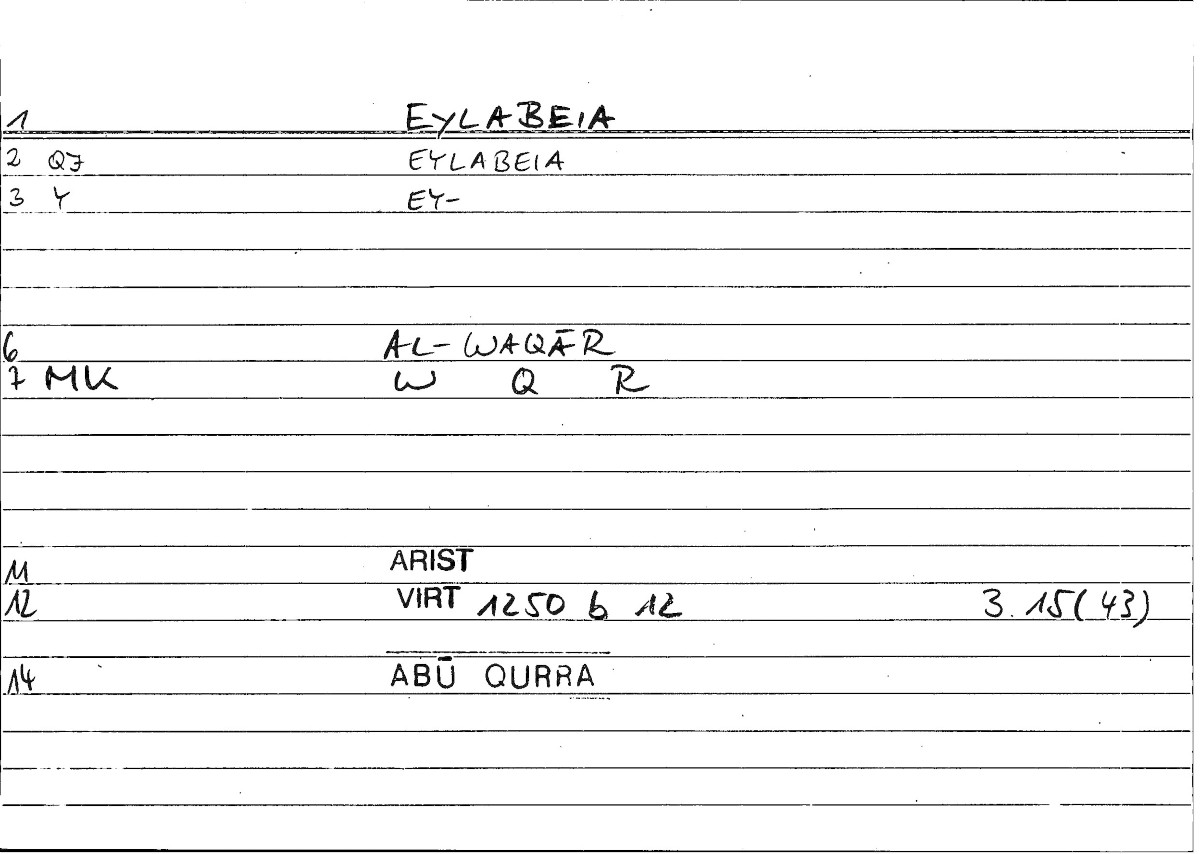 1 EYLABEIA
2 Q7 EYLABEIA
3 Y EY-
6 AL-WAQĀR
7 MK W Q R
11 ARIST
12 VIRT 1250 b 12 3.15(43)
14 ABŪ QURRA